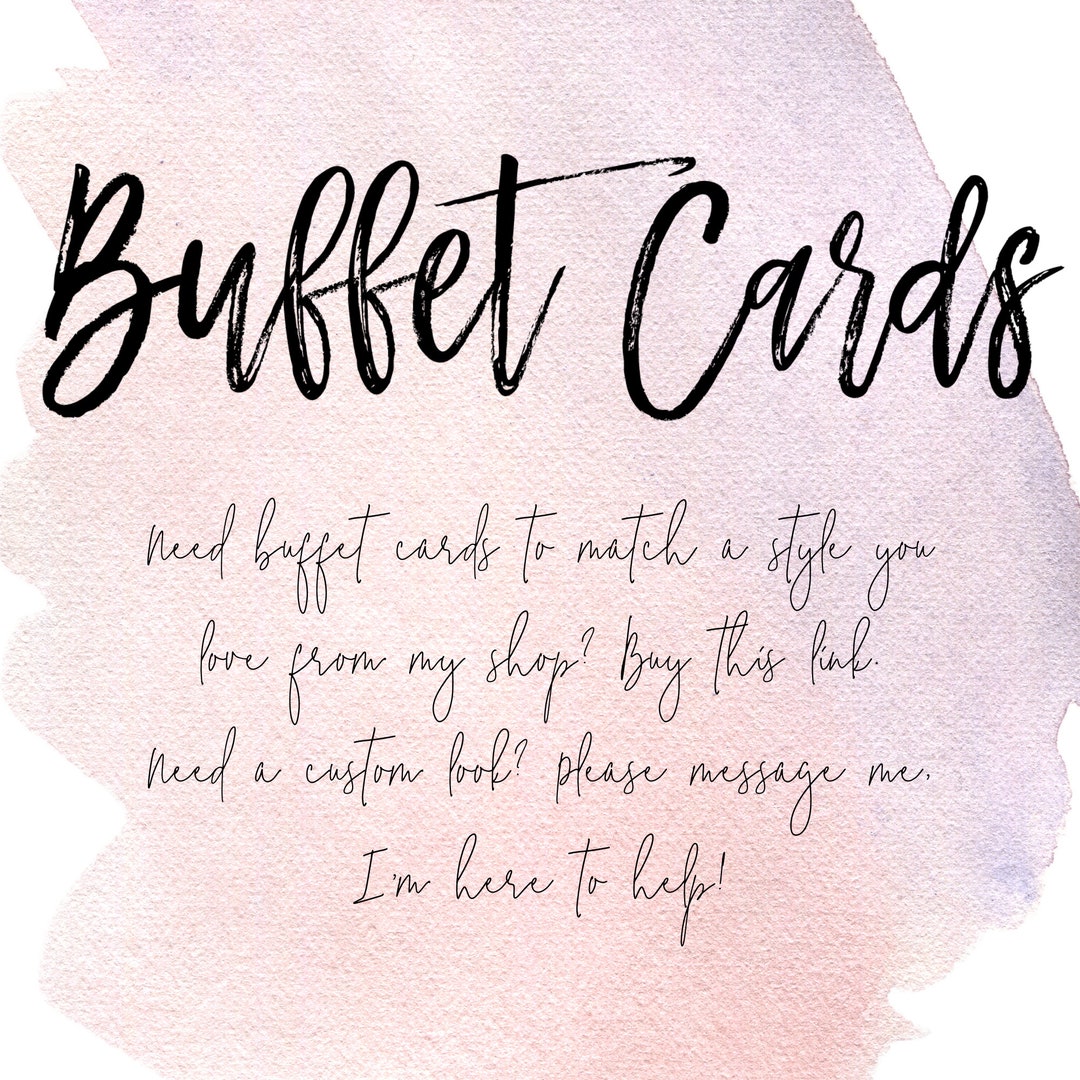 Buffet Cards
Need buffet cards to match a style you
love from my shop? Buy this link.
Need a custom look? Please message me,
I'm here to help!